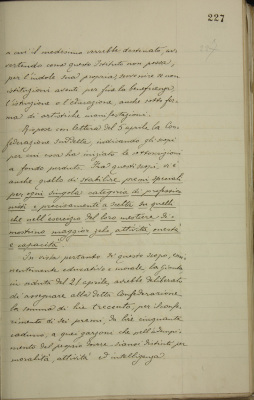 227
a cui il medesimo verrebbe destinato, av
vertendo come questo Istituto non possa,
per l'indole sua propria, sovvenire se non
istituzioni aventi per fine la beneficenza,
l'istruzione o l'educazione, anche sotto for
ma di artistiche manifestazioni.
Rispose con lettera del 5 aprile la Con
federazione suddetta, indicando gli scopi
per cui essa ha iniziato le sovvenzioni
a fondo perduto. Fra questi scopi, vi è
anche quello di stabilire premi speciali
per ogni singola categoria di professio
nisti e precisamente a scelta su quelli
che nell'esercizio del loro mestiere di
mostrino maggior zelo attività onestà
e capacità.
In vista pertanto di questo scopo, emi
nentemente educativo e morale, la Giunta
in seduta del 21 aprile, avrebbe deliberato
di assegnare alla detta Confederazione
la somma di lire trecento, per il confe
rimento di sei premi da lire cinquanta
caduno, a quei garzoni che nell'adempi
mento del proprio dovere siansi distinti per
moralità attività ed intelligenza.